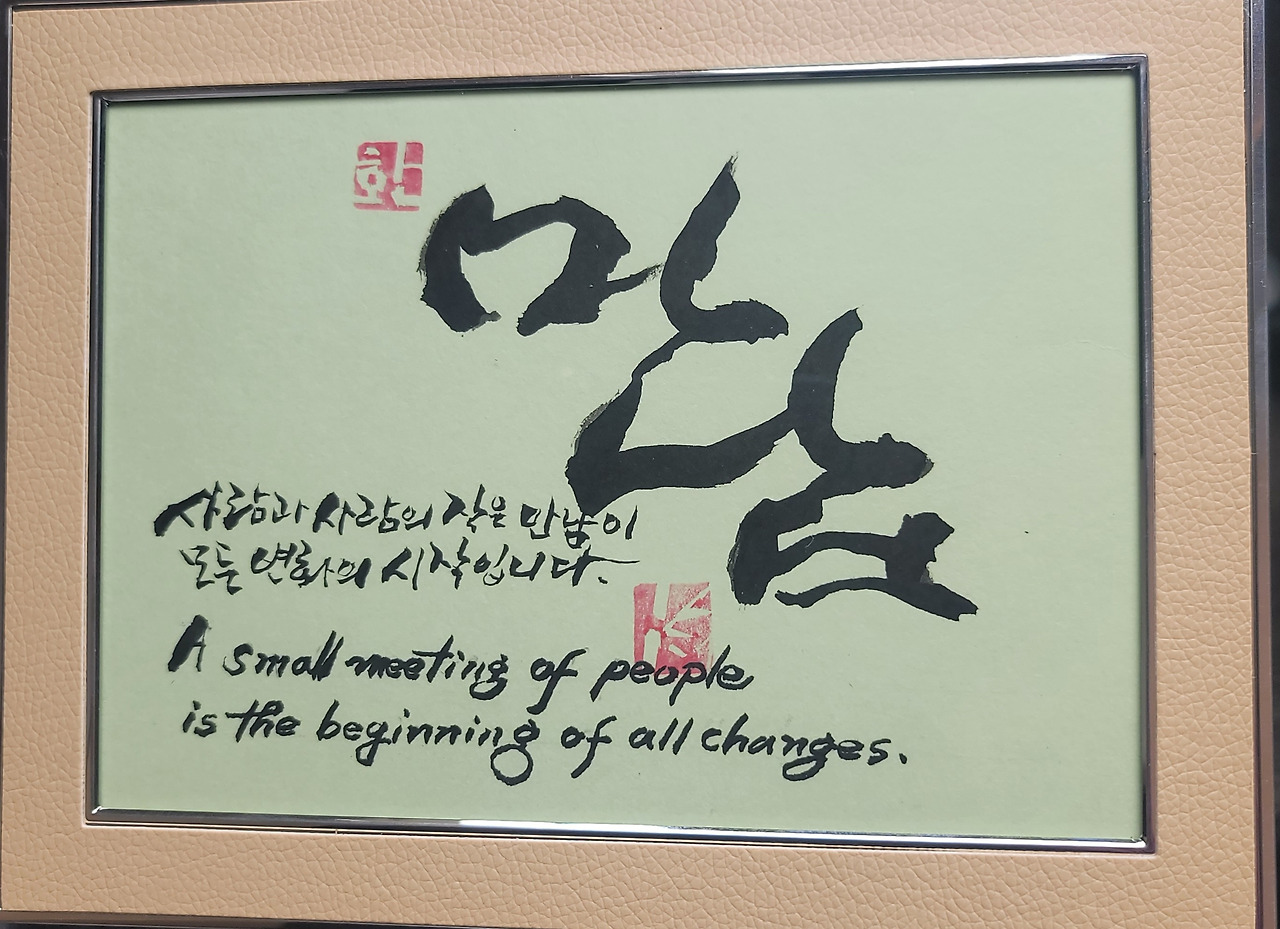 한
만남
사람과 사람의 작은 만남이
모든 변화의 시작입니다.
A small meeting of people
is the beginning of all changes.